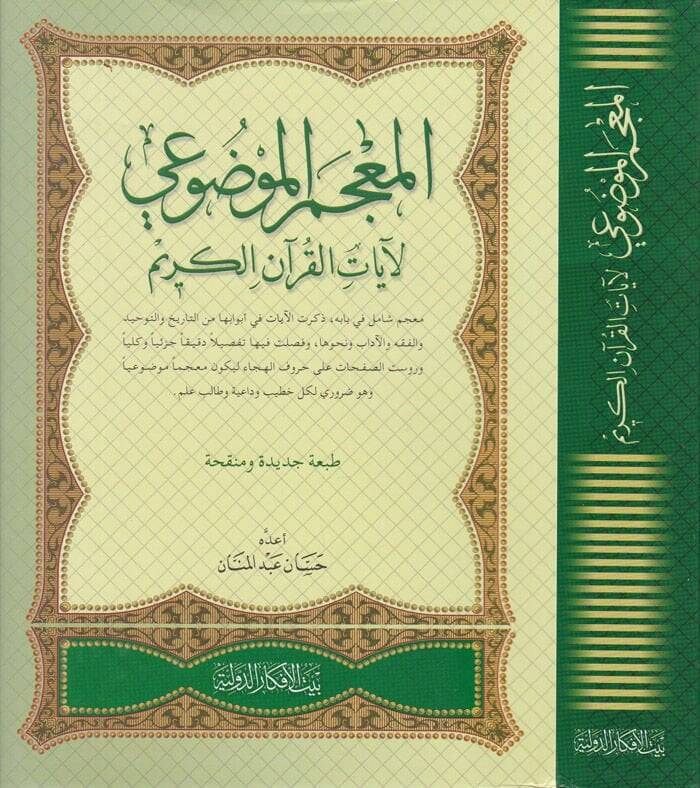 المعجم الموضوعي
لآيات القرآن الكريم
معجم شامل في بابه، ذكرت الآيات في أبوابها من التاريخ والتوحيد
والفقه والآداب ونحوها، وفصلت فيها تفصيلاً دقيقاً جزئياً وكلياً
وروست الصفحات على حروف الهجاء ليكون معجماً موضوعياً
وهو ضروري لكل خطيب وداعية وطالب علم.
طبعة جديدة ومنقحة
أعدَّه
حسان عبد المنان
بيت الأفكار الدولية
المعجم الموضوعي
لآيات القرآن الكريم
بيت الأفكار الدولية